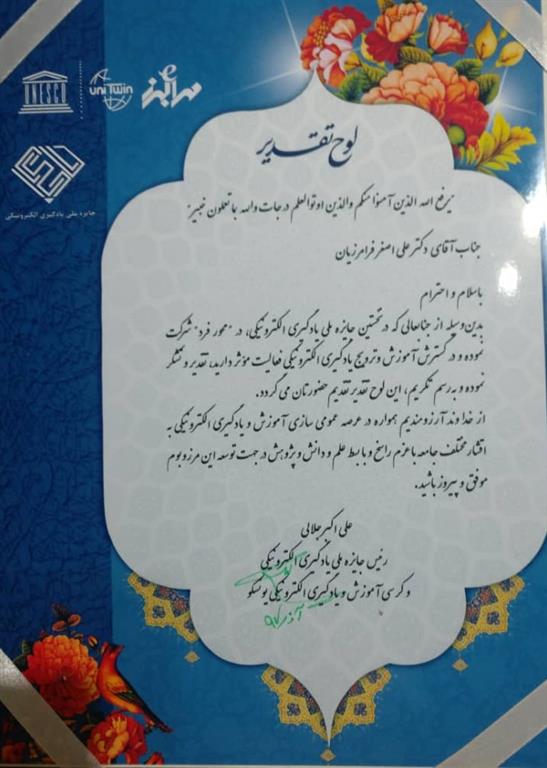 UNESCO
UNITWIN
مهرالبرز
جایزه ملی یادگیری الکترونیکی
لوح تقدیر
یرفع الله الذین آمنوا منکم والذین اوتوا العلم درجات والله بما تعلمون خبیر
جناب آقای دکتر علی اصغر فرامرزیان
باسلام و احترام
بدین وسیله از جنابعالی که در نخستین جایزه ملی یادگیری الکترونیکی، در "محور فرد" شرکت
نموده و در گسترش آموزش و ترویج یادگیری الکترونیکی فعالیت مؤثر دارید، تقدیر و تشکر
نموده و به رسم تکریم، این لوح تقدیر تقدیم حضورتان می گردد.
از خداوند آرزومندیم همواره در عرصه عمومی سازی آموزش و یادگیری الکترونیکی به
اقشار مختلف جامعه با عزم راسخ و با بسط علم و دانش و پژوهش در جهت توسعه این مرز و بوم
موفق و پیروز باشید.
علی اکبر جلالی
رئیس جایزه ملی یادگیری الکترونیکی
و کرسی آموزش و یادگیری الکترونیکی یونسکو
آذر ۹۷